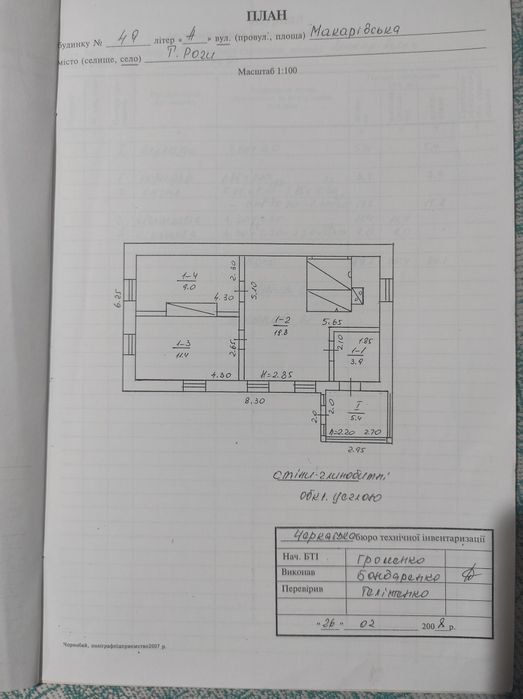 ПЛАН
будинку № 49 літер «А» вул. (провул., площа) Макарівська
місто (селище, село) Т. Роги
Масштаб 1:100
1-4
9.0
2.30
4.30
5.10
6.25
1-2
18.8
5.65
1-3
11.4
2.65
2.10
1.85
1-1
3.9
4.30
H=2.85
8.30
2.0
2.0
I
5.4
h=2.20
2.70
2.95
стіни-глинобитні
обкл. цеглою
Черкаське бюро технічної інвентаризації
Нач. БТІ Громенко
Виконав Бондаренко
Перевірив
"26" 02 2008 р.
Чорнобай, поліграфпідприємство2007 р.